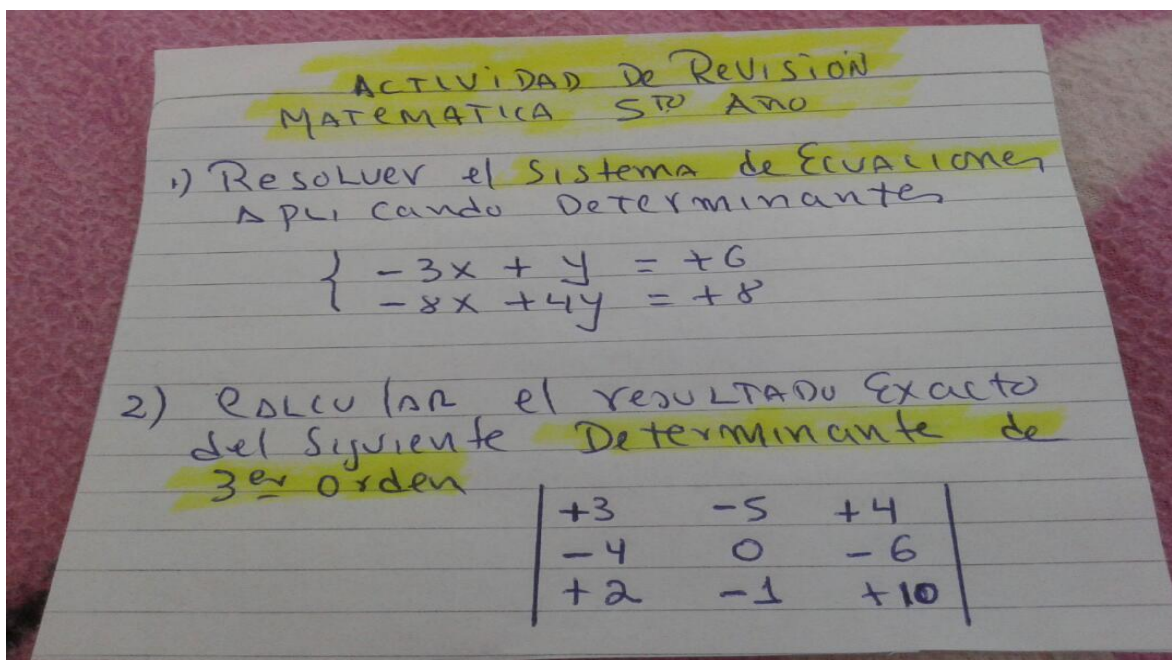 ACTIVIDAD De ReVISIÓN
MATeMATICA 5TO AÑO
1) ResoLver el SIstema de ECUACIONes
APLI cando DeTerminantes
{ -3x + y = +6
-8x +4y = +8
2) CALCULAR el resULTADO Exacto
del Siguiente Determinante de
3er Orden
+3 -5 +4
-4 0 -6
+2 -1 +10